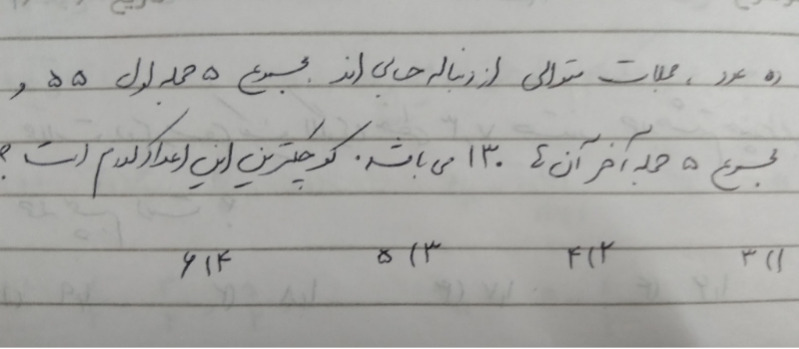 ده عدد، جملات متوالی از دنباله حسابی اند. مجموع ۵ جمله اول ۵۵ و
مجموع ۵ جمله آخر آن ها ۱۳۰ می باشد. کوچکترین این اعداد کدام است؟
۱) ۳ ۲) ۴ ۳) ۵ ۴) ۶